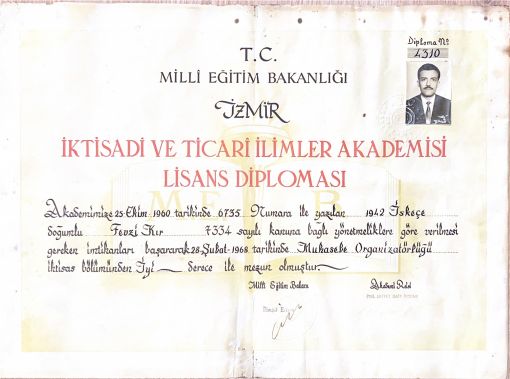 Diploma №
1310
T. C.
MİLLÎ EĞİTİM BAKANLIĞI
İZMİR
İKTİSADİ VE TİCARİ İLİMLER AKADEMİSİ
LİSANS DİPLOMASI
Akademimize 25-Ekim-1960 tarihinde 6735 Numara ile yazılan 1942 İskeçe
doğumlu Fevzi Kır 7334 sayılı kanuna bağlı yönetmeliklere göre verilmesi
gereken imtihanları başararak 28-Şubat-1968 tarihinde Muhasebe Organizatörlüğü
ihtisas bölümünden İyi derece ile mezun olmuştur.
Millî Eğitim Bakanı
Akademi